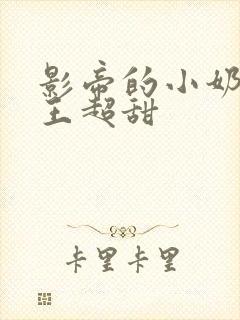 影帝的小奶
王超甜
卡里卡里